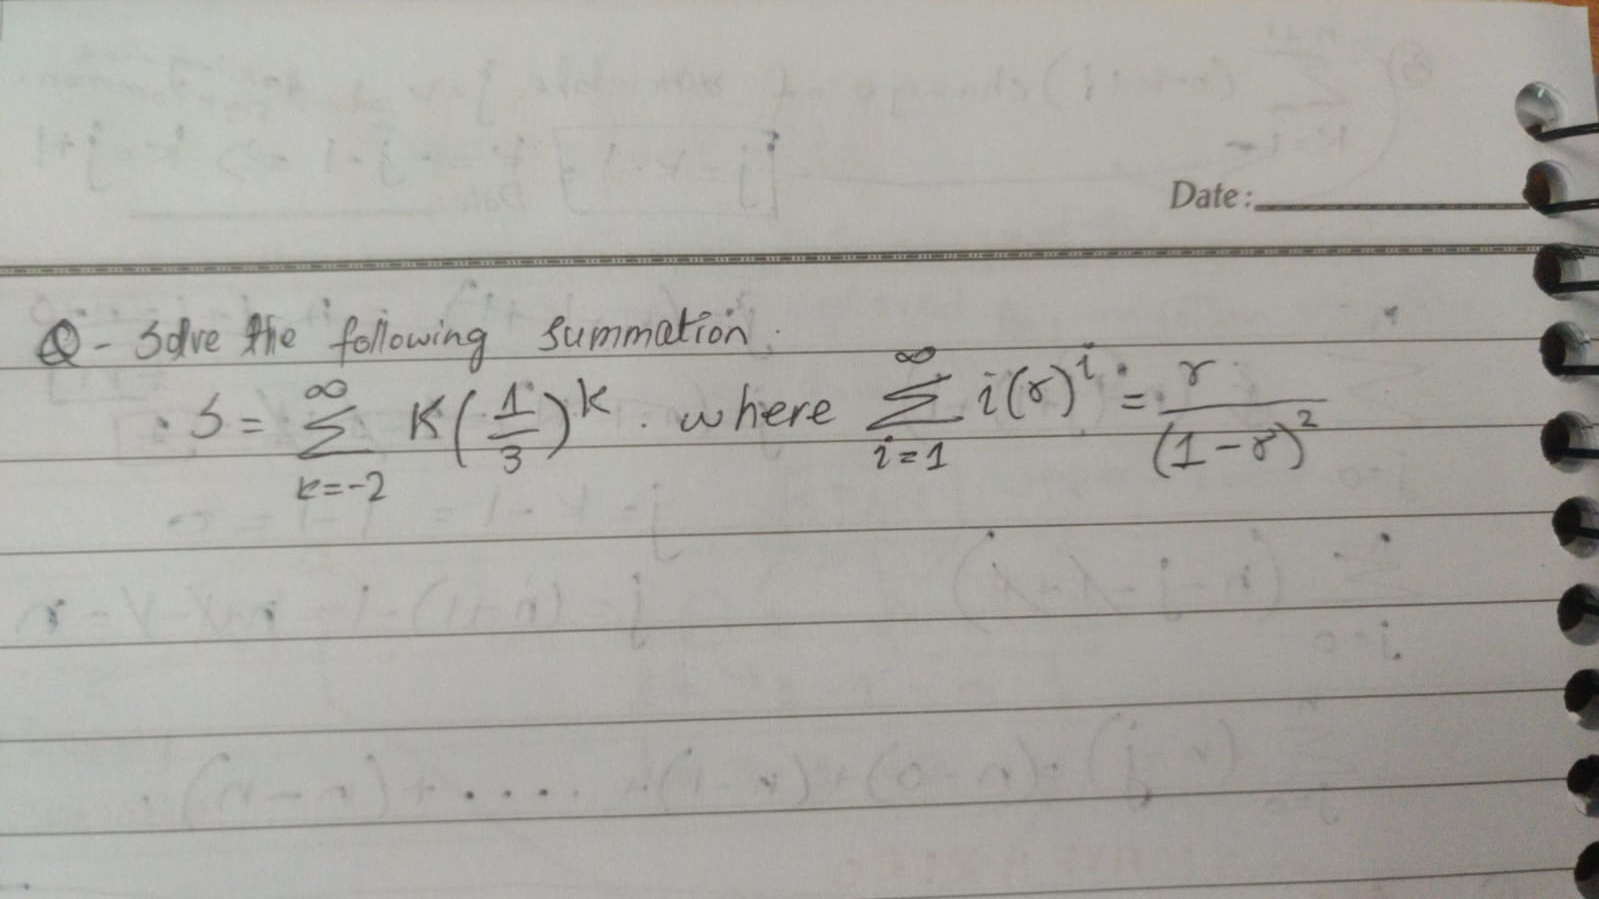 Date:
Q - Solve the following summation.
S = ∑_{k=-2}^{∞} K(1/3)^k . where ∑_{i=1}^{∞} i(r)^i = r/(1-r)^2